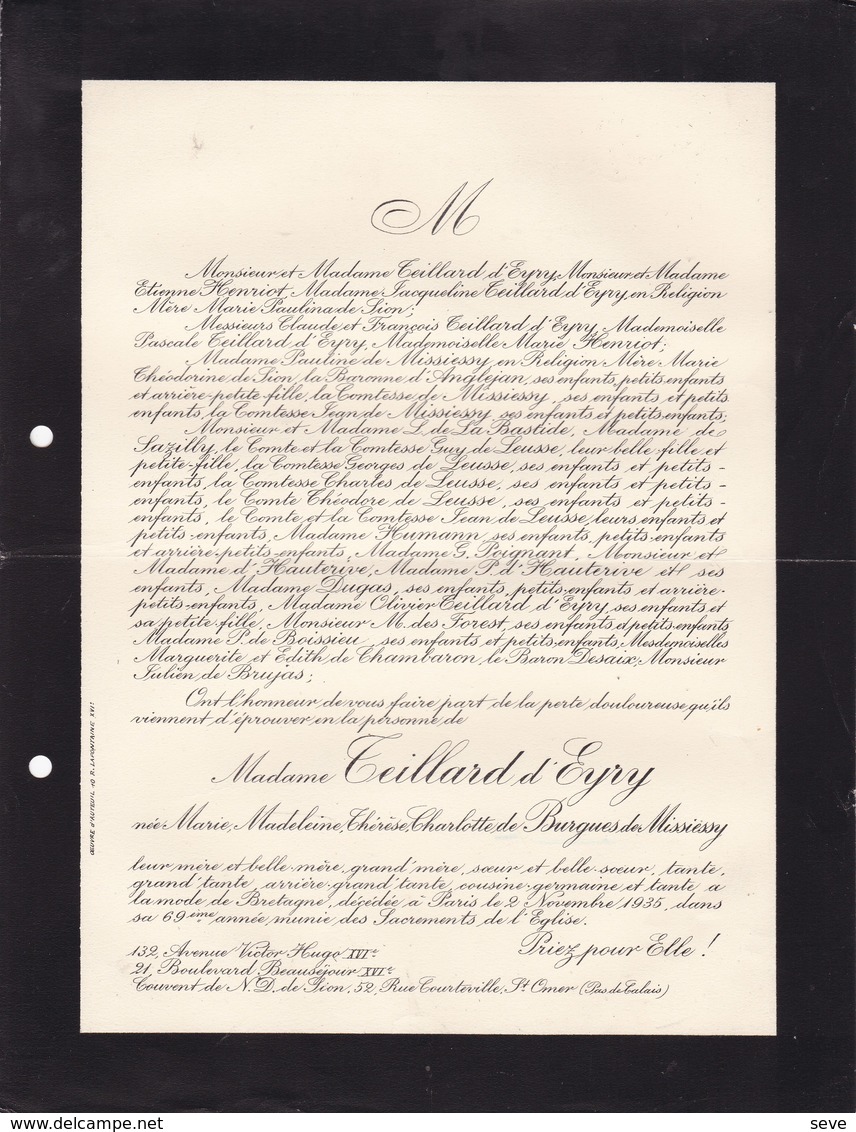 M
Monsieur et Madame Teillard d'Eyry, Monsieur et Madame
Etienne Henriot, Madame Jacqueline Teillard d'Eyry, en Religion
Mère Marie Paulina de Sion;
Messieurs Claude et François Teillard d'Eyry, Mademoiselle
Pascale Teillard d'Eyry, Mademoiselle Marie Henriot;
Madame Pauline de Missiessy, en Religion Mère Marie
Théodorine de Sion, la Baronne d'Anglejan, ses enfants, petits enfants
et arrière-petite-fille, la Comtesse de Missiessy, ses enfants et petits
enfants, la Comtesse Jean de Missiessy, ses enfants et petits enfants;
Monsieur et Madame L. de La Bastide, Madame de
Sazilly, le Comte et la Comtesse Guy de Leusse, leur belle-fille et
petite-fille, la Comtesse Georges de Leusse, ses enfants et petits-
enfants, la Comtesse Charles de Leusse, ses enfants et petits-
enfants, le Comte Théodore de Leusse, ses enfants et petits-
enfants, le Comte et la Comtesse Jean de Leusse, leurs enfants et
petits-enfants, Madame Humann, ses enfants, petits-enfants
et arrière-petits-enfants, Madame G. Poignant, Monsieur et
Madame d'Hauterive, Madame P. d'Hauterive et ses
enfants, Madame Dugas, ses enfants, petits-enfants et arrière-
petits-enfants, Madame Olivier Teillard d'Eyry, ses enfants et
sa petite-fille, Monsieur M. des Forest, ses enfants et petits-enfants
Madame P. de Boissieu, ses enfants et petits-enfants, Mesdemoiselles
Marguerite et Edith de Chambaron, le Baron Desaix, Monsieur
Julien de Brujas;
Ont l'honneur de vous faire part de la perte douloureuse qu'ils
viennent d'éprouver en la personne de
Madame Teillard d'Eyry
née Marie, Madeleine, Thérèse, Charlotte, de Burgues de Missiessy
leur mère et belle-mère, grand'mère, sœur et belle-sœur, tante,
grand'tante, arrière-grand'tante, cousine-germaine et tante à
la mode de Bretagne, décédée à Paris le 2 Novembre 1935, dans
sa 69ème année munie des Sacrements de l'Eglise.
Priez pour Elle !
132, Avenue Victor Hugo XVIe
21, Boulevard Beauséjour XVIe
Couvent de N.D. de Sion, 52, Rue Courteville, St Omer (Pas de Calais)
ŒUVRE d'AUTEUIL 40 R. LAFONTAINE XVIe
seve